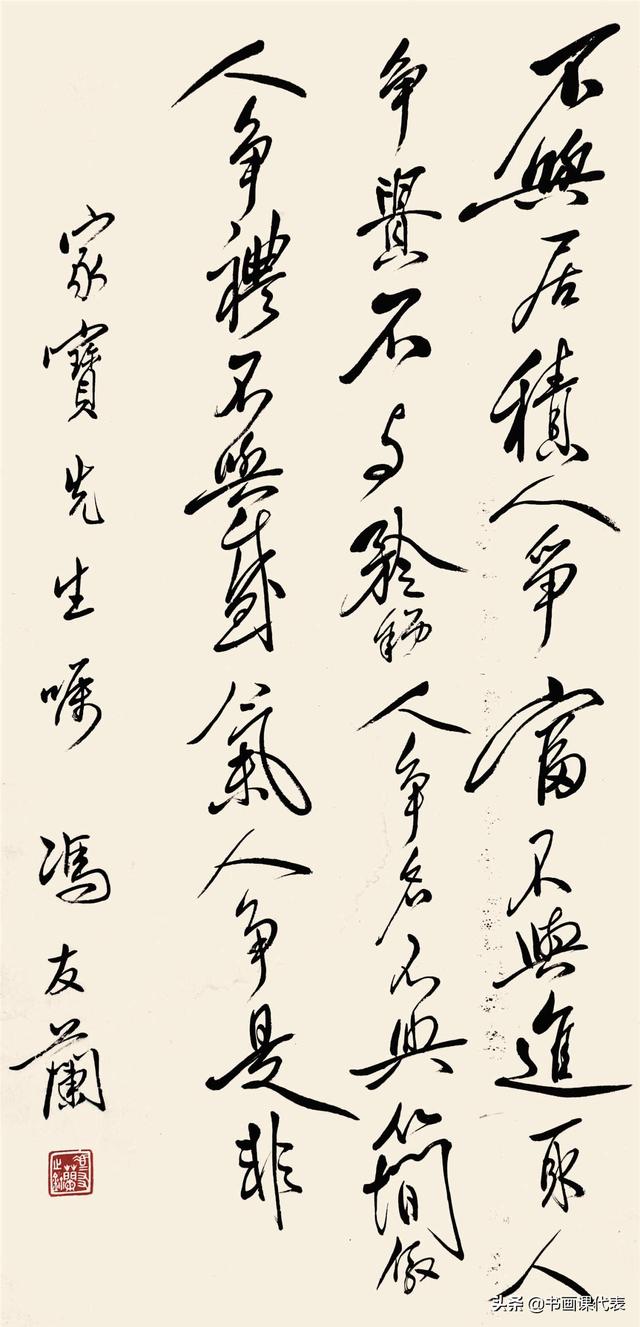 不與居積人爭富不與進取人
争貴不与矜飾人争名不與簡傲
人争禮不與盛氣人争是非
家寶先生嘱 馮友蘭
头条 @书画课代表